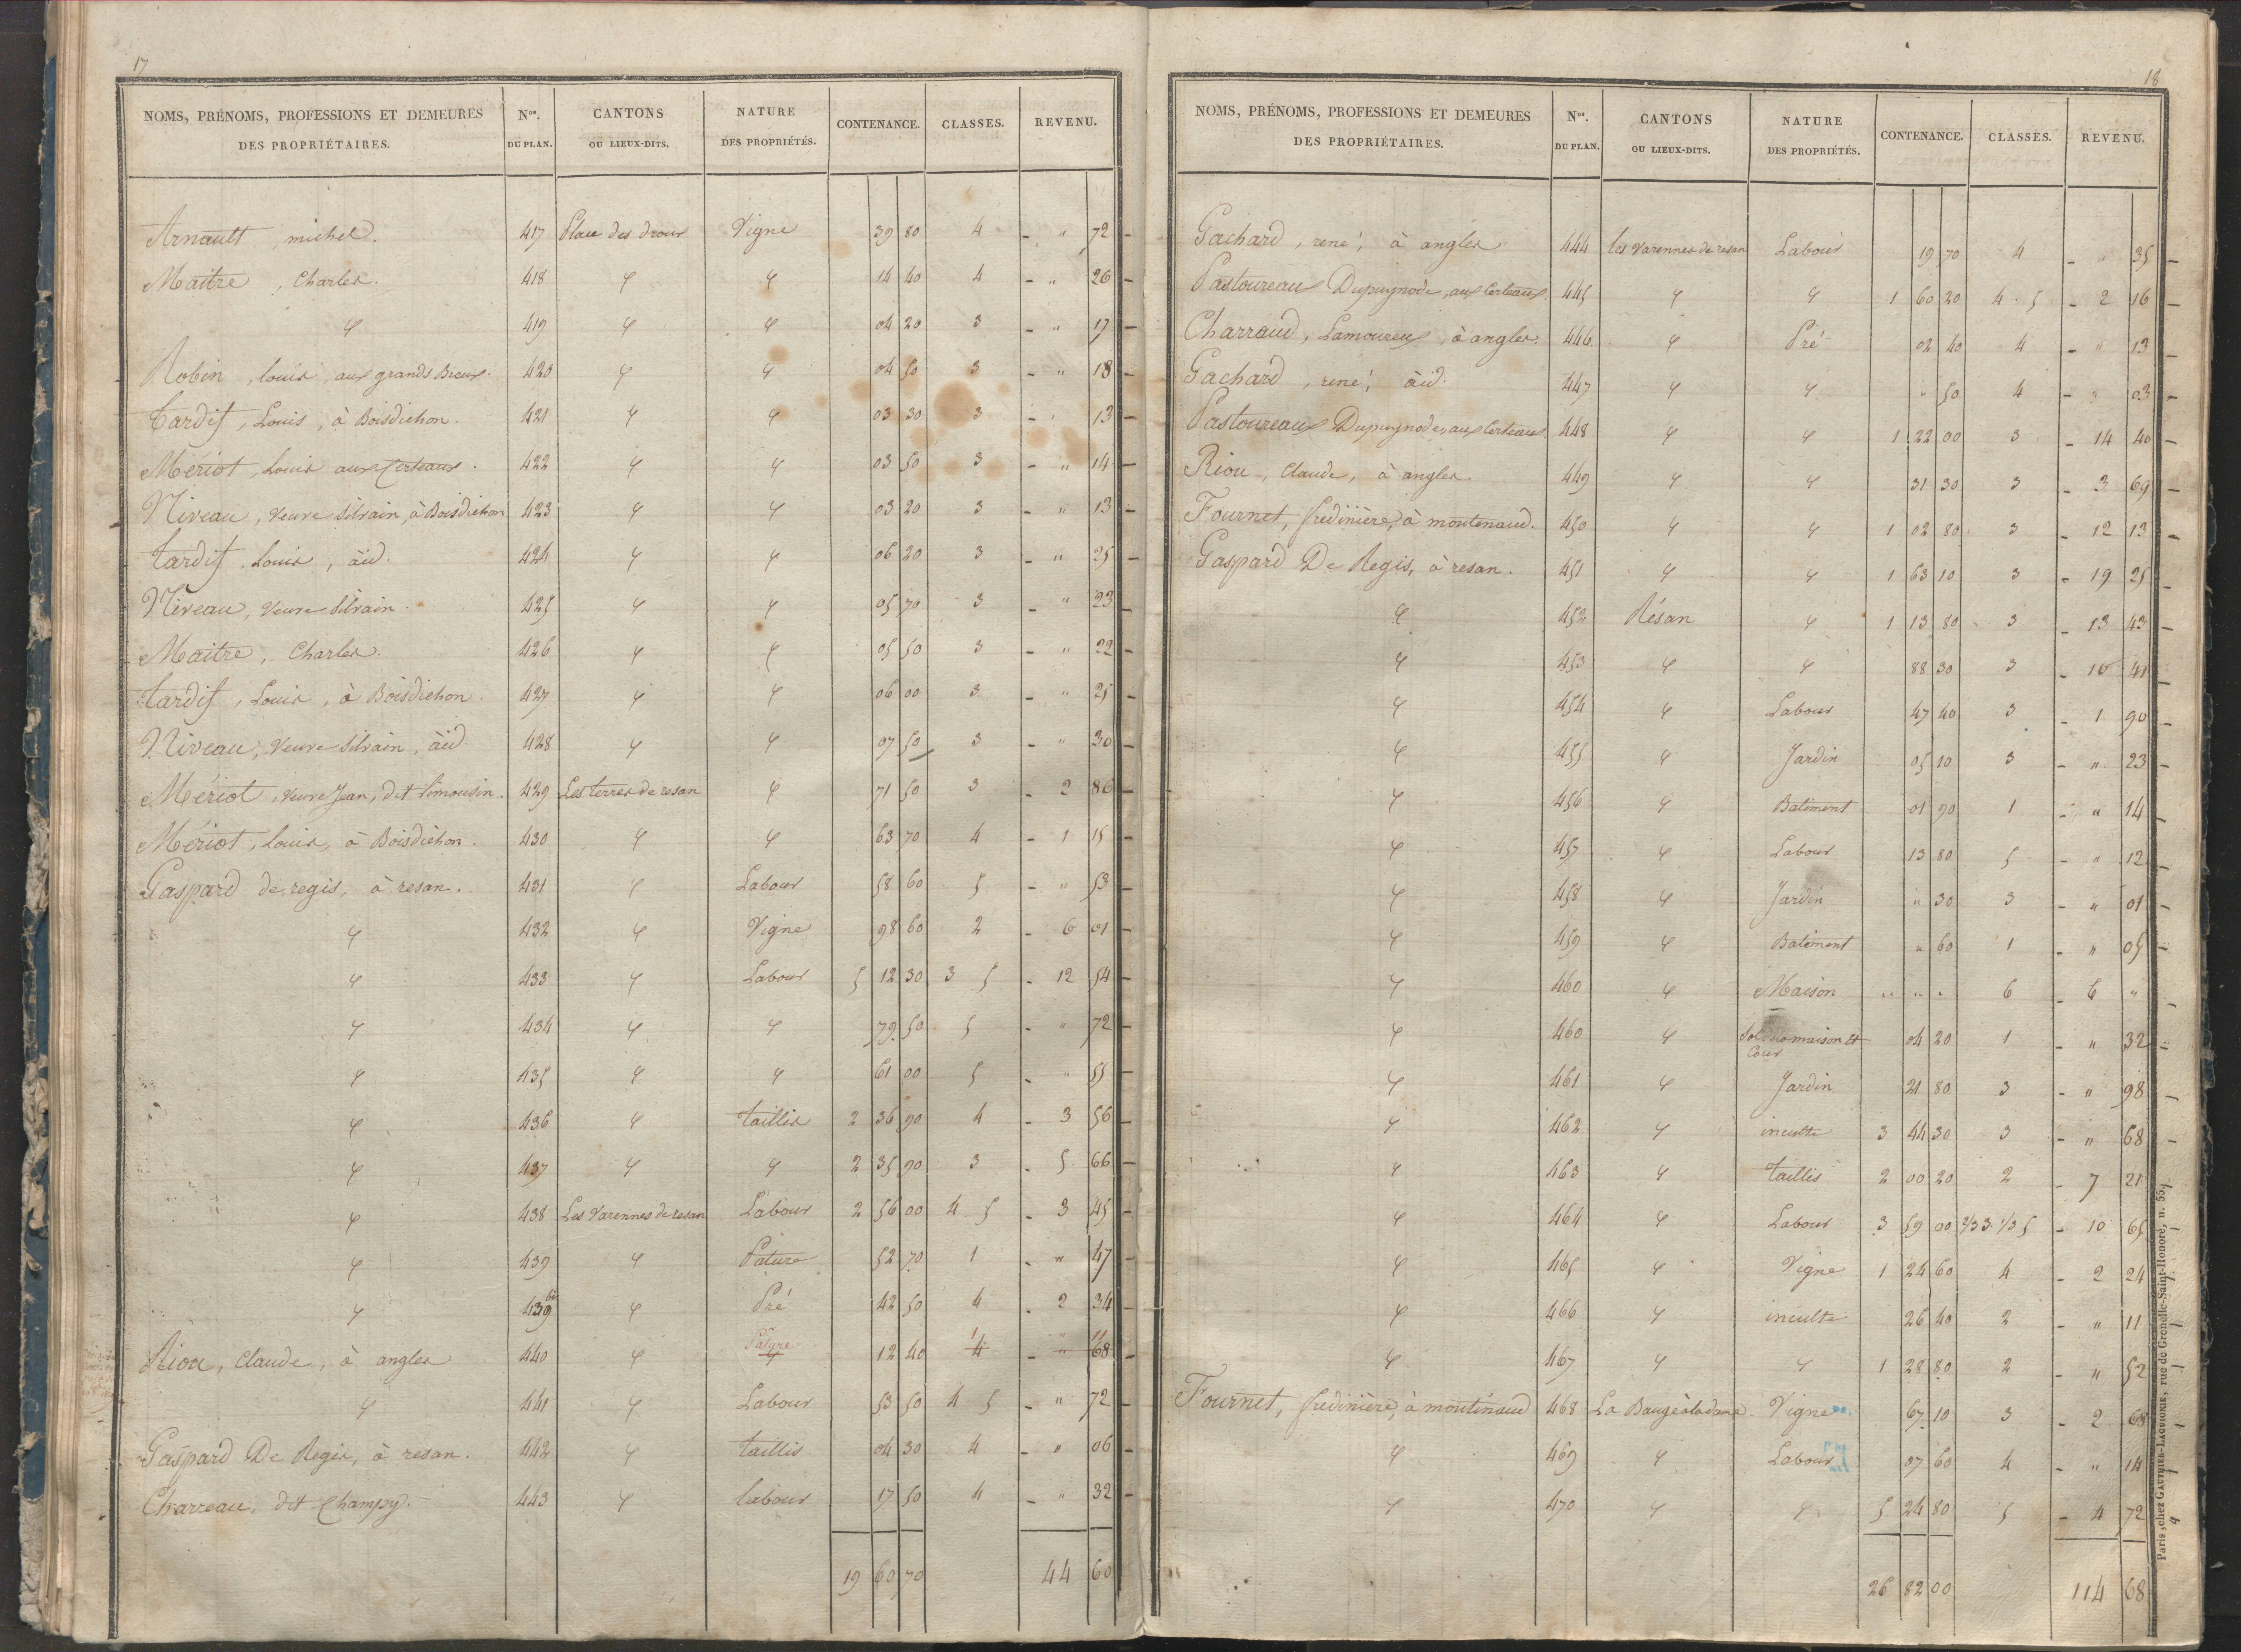 17
NOMS, PRÉNOMS, PROFESSIONS ET DEMEURES DES PROPRIÉTAIRES. Nos. DU PLAN. CANTONS OU LIEUX-DITS. NATURE DES PROPRIÉTÉS. CONTENANCE. CLASSES. REVENU.
Arnault, michel. 417 Place des droux Vigne 39 80 4 - " 72 -
Maitre, Charles. 418 φ φ 14 40 4 - " 26 -
φ 419 φ φ 04 20 3 - " 17 -
Robin, louis, aux grands Breux. 420 φ φ 04 50 3 - " 18 -
tardif, Louis, à Boisdichon. 421 φ φ 03 30 3 - " 13 -
Mériot, Louis aux Certeaux. 422 φ φ 03 50 3 - " 14 -
Niveau, Veuve silvain, à Boisdichon 423 φ φ 03 20 3 - " 13 -
tardif, Louis, äid. 424 φ φ 06 20 3 - " 25 -
Niveau, Veuve silvain. 425 φ φ 05 70 3 - " 23 -
Maitre, Charles. 426 φ φ 05 50 3 - " 22 -
tardif, Louis, à Boisdichon. 427 φ φ 06 00 3 - " 25 -
Niveau, Veuve silvain, äid 428 φ φ 07 50 3 - " 30 -
Mériot, Veuve Jean, dit limousin. 429 Les terres de resan φ 71 50 3 - 2 86 -
Mériot, Louis, à Boisdichon. 430 φ φ 63 70 4 - 1 15 -
Gaspard de regis, à resan. 431 φ Labour 58 60 5 - " 53 -
φ 432 φ Vigne 98 60 2 - 6 01 -
φ 433 φ Labour 5 12 30 3 5 - 12 54 -
φ 434 φ φ 79 50 5 - " 72 -
φ 435 φ φ 61 00 5 - " 55 -
φ 436 φ taillis 2 36 90 4 - 3 56 -
φ 437 φ φ 2 35 90 3 - 5 66 -
φ 438 Les Varennes de resan Labour 2 56 00 4 5 - 3 45 -
φ 439 φ Pature 52 70 1 - " 47 -
φ 439 bis φ Pré 42 50 4 - 2 34 -
Riou, Claude, à angles 440 φ Pature φ 12 40 1 4 - " 11 68 -
φ 441 φ Labour 53 50 4 5 - " 72 -
Gaspard De Regis, à resan. 442 φ taillis 04 30 4 - " 06 -
Charreau, dit Champy. 443 φ labour 17 50 4 - " 32 -
19 60 70 44 60
18
NOMS, PRÉNOMS, PROFESSIONS ET DEMEURES DES PROPRIÉTAIRES. Nos. DU PLAN. CANTONS OU LIEUX-DITS. NATURE DES PROPRIÉTÉS. CONTENANCE. CLASSES. REVENU.
Gachard, rené, à angles 444 les Varennes de resan Labour 19 70 4 - " 35 -
Pastoureau Dupuynode, aux Certeaux. 445 φ φ 1 60 20 4. 5 - 2 16 -
Charraud, Lamoureux, à angles. 446 φ Pré 02 40 4 - " 13 -
Gachard, rené, äid. 447 φ φ " 50 4 - " 03 -
Pastoureau Dupuynode, aux Certeaux. 448 φ φ 1 22 00 3 - 14 40 -
Riou, Claude, à angles. 449 φ φ 31 30 3 - 3 69 -
Fournet, fredinière, à moutenaud. 450 φ φ 1 02 80 3 - 12 13 -
Gaspard De Regis, à resan. 451 φ φ 1 63 10 3 - 19 25 -
φ 452 Résan φ 1 13 80 3 - 13 43 -
φ 453 φ φ 88 30 3 - 10 41 -
φ 454 φ Labour 47 40 3 - 1 90 -
φ 455 φ Jardin 05 10 3 - " 23 -
φ 456 φ Batiment 01 90 1 - " 14 -
φ 457 φ Labour 13 80 5 - " 12 -
φ 458 φ Jardin " 30 3 - " 01 -
φ 459 φ Batiment " 60 1 - " 05 -
φ 460 φ Maison " " " 6 - 6 " -
φ 460 φ Sol de maison et Cour 04 20 1 - " 32 -
φ 461 φ Jardin 21 80 3 - " 98 -
φ 462 φ inculte 3 44 30 3 - " 68 -
φ 463 φ taillis 2 00 20 2 - 7 21 -
φ 464 φ Labour 3 59 00 2/3 3. 1/3 5 - 10 65 -
φ 465 φ Vigne 1 24 60 4 - 2 24 -
φ 466 φ inculte 26 40 2 - " 11 -
φ 467 φ φ 1 28 80 2 - " 52 -
Fournet, fredinière, à moutinaud 468 La Baugeàladame Vigne 67 10 3 - 2 68 -
φ 469 φ Labour 07 60 4 - " 14 -
φ 470 φ φ 5 24 80 5 - 4 72 -
26 82 00 114 68
Paris, chez GAUTHIER-LAGUIONIE, rue de Grenelle-Saint-Honoré, n. 55.
9